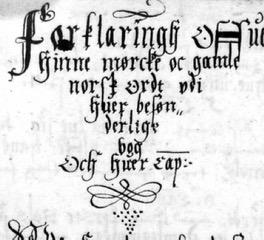 Forklaringh Offue
hinne mørcke oc gamle
norsk ordt vdi
huer besøn„
derlige
bog
Och huer Cap: